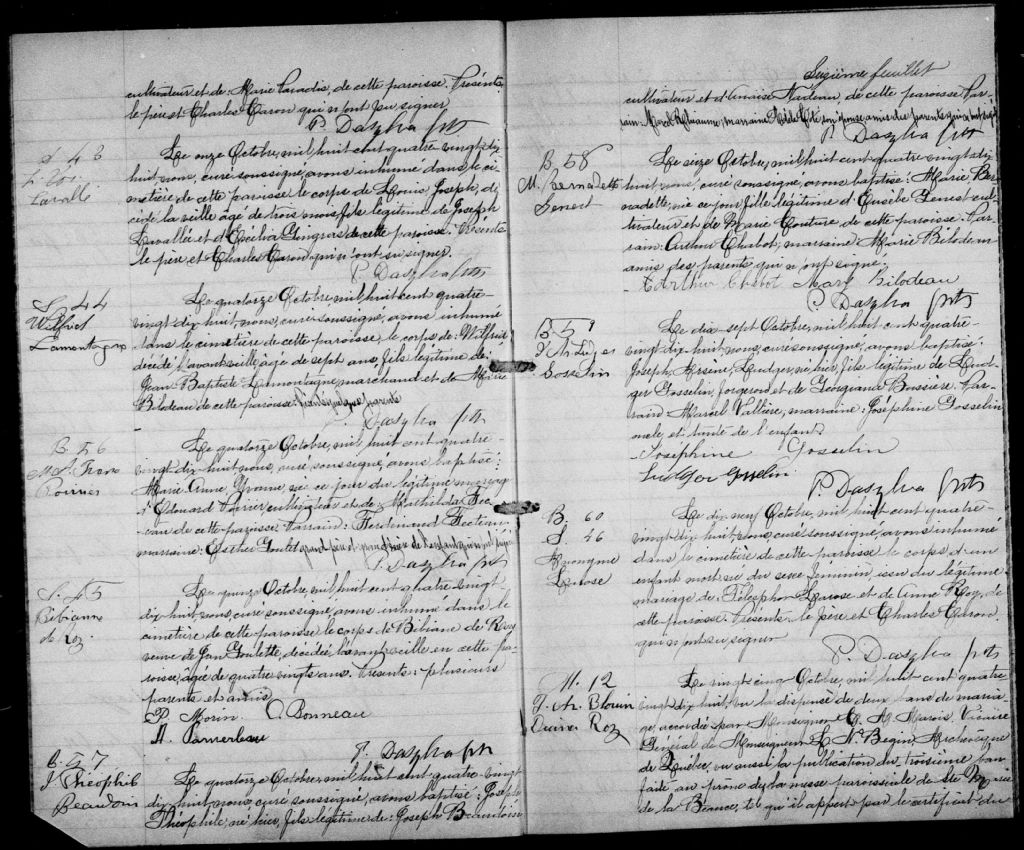 cultivateur et de Marie Paradis, de cette paroisse. Présents
le père et Charles Caron qui n'ont su signer
P. Daszlva ptr
S. 43
Louis
Lavallé
Le onze Octobre, mil huit cent quatre vingt dix
huit, nous, curé soussigné, avons inhumé dans le ci-
metière de cette paroisse le corps de Louis Joseph, dé-
cédé la veille âgé de trois mois, fils légitime de Joseph
Lavallée et d'Exécilia Gingras de cette paroisse. Présents
le père et Charles Caron qui n'ont su signer.
P. Daszlva ptr
S. 44
Wilfrid
Lamontagne
Le quatorze Octobre, mil huit cent quatre-
vingt dix huit, nous, curé soussigné, avons inhumé
dans le cimetière de cette paroisse, le corps de: Wilfrid
décédé l'avant veille, âgé de sept ans, fils légitime de:
Jean Baptiste Lamontagne, marchand et de Marie
Bilodeau de cette paroisse. parents
P. Daszlva ptr
B. 56
Poirier
Le quatorze Octobre, mil huit cent quatre-
vingt dix huit, nous, curé soussigné, avons baptisé:
Marie Anne Yvonne, née ce jour du légitime mariage
d'Edouard Poirier, cultivateur et de Mathilda Fec-
teau de cette paroisse. Parrain: Ferdinand Fecteau
marraine: Esther Goulet
P. Daszlva ptr
S. 45
Bibianne
de Roy.
Le quinze Octobre, mil huit cent quatre vingt
dix huit, nous, curé soussigné, avons inhumé dans le
cimetière de cette paroisse le corps de Bibiane de Roy
veuve de Jean Goulette, décédée l'avant veille en cette pa-
roisse, âgée de quatre vingts ans. Présents: plusieurs
parents et amis
P. Morin. O. Bonneau
A. Pomerleau
P. Daszlva ptr
B. 57
J. Théophile
Beaudoin
Le quatorze Octobre, mil huit cent quatre-vingt
dix huit, nous, curé soussigné, avons baptisé: Joseph
Théophile, né hier, fils légitime de: Joseph Beaudoin
Sixième feuillet
cultivateur et d' Nadeau, de cette paroisse. Par-
P. Daszlva ptr
B. 58
M. Bernadette
Genest
Le seize Octobre, mil huit cent quatre vingt dix
huit, nous, curé soussigné, avons baptisé: Marie Ber-
nadette, née ce jour, fille légitime d'Eusèbe Genest cul-
tivateur et de Marie Couture de cette paroisse. Par-
rain: Arthur Chabot, marraine: Marie Bilodeau
amis des parents qui n'ont signé.
Arthur Chabot Mary Bilodeau
P. Daszlva ptr
B. 59
J. Ar. Ludger
Gosselin
Le dix-sept Octobre, mil huit cent quatre-
vingt dix huit, nous, curé soussigné, avons baptisé:
Joseph, Arsene, Ludger, né hier, fils légitime de Lud-
ger Gosselin, forgeron et de Géorgiana Bussière. Par-
rain: Marcel Vallière, marraine: Joséphine Gosselin
oncle, et tante de l'enfant.
Josephine Gosselin
Ludger Gosselin
P. Daszlva ptr
B. 60
S. 46
Anonyme
Larose
Le dix neuf Octobre, mil huit cent quatre-
vingt dix huit, nous, curé soussigné, avons inhumé
dans le cimetière de cette paroisse le corps d'un
enfant mort-né du sexe féminin, issu du légitime
mariage de: Télesphor Larose et de Anne Roy, de
cette paroisse. Présents: le père et Charles Caron.
qui n'ont su signer
P. Daszlva ptr
M. 12
J. An. Blouin
Roy
Le vingt cinq Octobre, mil huit cent quatre
vingt dix huit, vu la dispense de deux bans de maria
ge, accordée par Monseigneur C. A. Marois, Vicaire
Général de Monseigneur L. N. Bégin, Archevêque
de Québec, vu aussi la publication du troisième ban
faite au prône de la messe paroissiale de Ste Marie
de la Beauce, tel qu'il appert par le certificat du